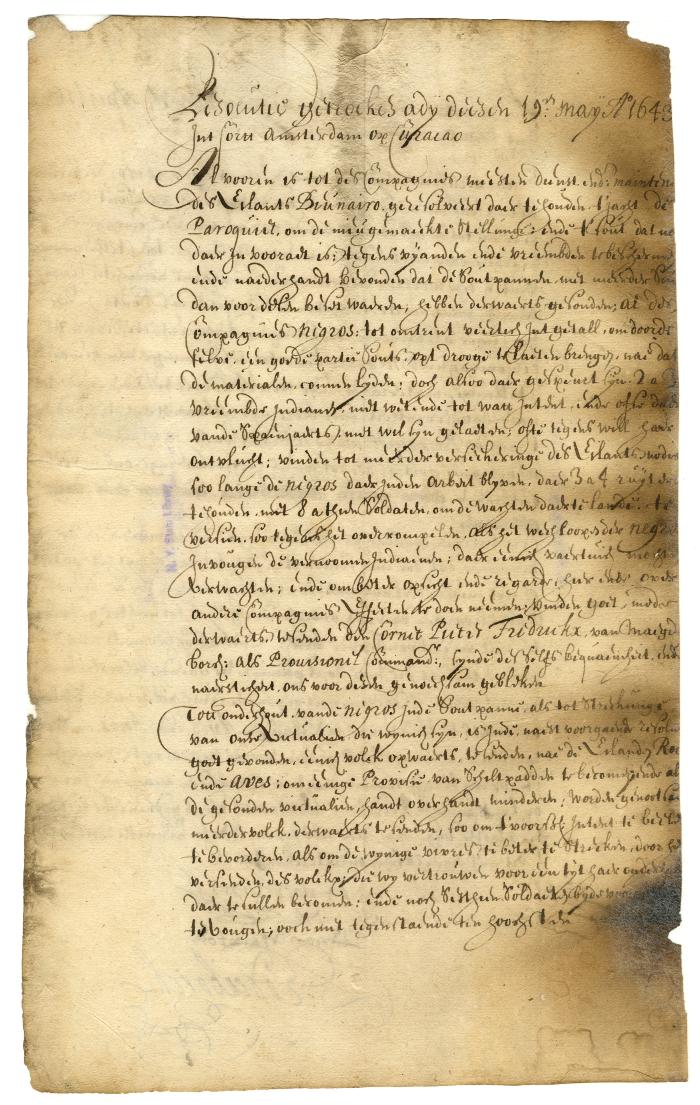 Resolutie getrocken ady deesen 19en. may Ao 1643
Int fort Amsterdam op Curacao
Alvooren is tot des Compagnies meesten dienst ende mainten
des Eilants Bunairo geresolveert daer te houden t'jacht de
Paroquiet, om de nieu gemaeckte Stellinge ende t' sout dat
daer in vooraet is; tegens vyanden ende vreembden te bescher
ende naederhandt bevonden dat de Soutpannen met meerder
dan voor desen beset waeren, hebben derwaerts gesonden, al des
Compagnies negros: tot omtrent veertich Int getall, om
selve een goede partie Souts opt drooge te laeten brengen, nae dat
de materialen connen lyden; doch alsoo daer gespeurt syn 2 a
vreembde Indianen, niet wetende tot watt Intent, ende ofte
vande Spainjaerts met wil syn gelaeten; ofte tegens will haer
ontvlucht; vinden tot meerder verseekeringe des Eilants
soo lange de negros daer inden arbeit blyven, daer 3 a 4 ruyters
te houden, met 8 a thien Soldaten, om de wachten daer te lande te
versien, soo tegens het onderrompelen, als het wechloopen der negros
In vougen de vernoomen Indianen; daer eenich vaertuich
verwachten; ende om beter opsicht ende regarde, hier ende over
andere Compagnies Effecten te doen neemen; vinden goet, mede
derwaerts te senden den Cornet Pieter Fredrickx, van Maegd
borch: als Provisionel Command:, synde des selfs bequaemheit, ende
naersticheit, ons voor desen genoechsam gebleken
Tott onderhout vande negros inde Soutpanne, als tot Streckinge
van onse victualien die weynich syn, is Inde naest voorgaende resolu
goet gevonden, eenich volck opwaerts te senden, nae de Eilanden Ro
ende Aves; om eenige Provisie van Schiltpadden te becomen; ende
de gesonden victualien, handt over handt minderen; worden genootsa
meerder volck derwaerts te senden, soo om 't voorsz. Intent te
te bevorderen, als om de wynige vivres te beter te Strecken, door
versenden, des volckx; die wy vertrouwen voor een tyt haer onder
daer te sullen becomen; ende noch Sesthien Soldaten by de
te vougen; ooch niet tegenstaende ten hoochsten